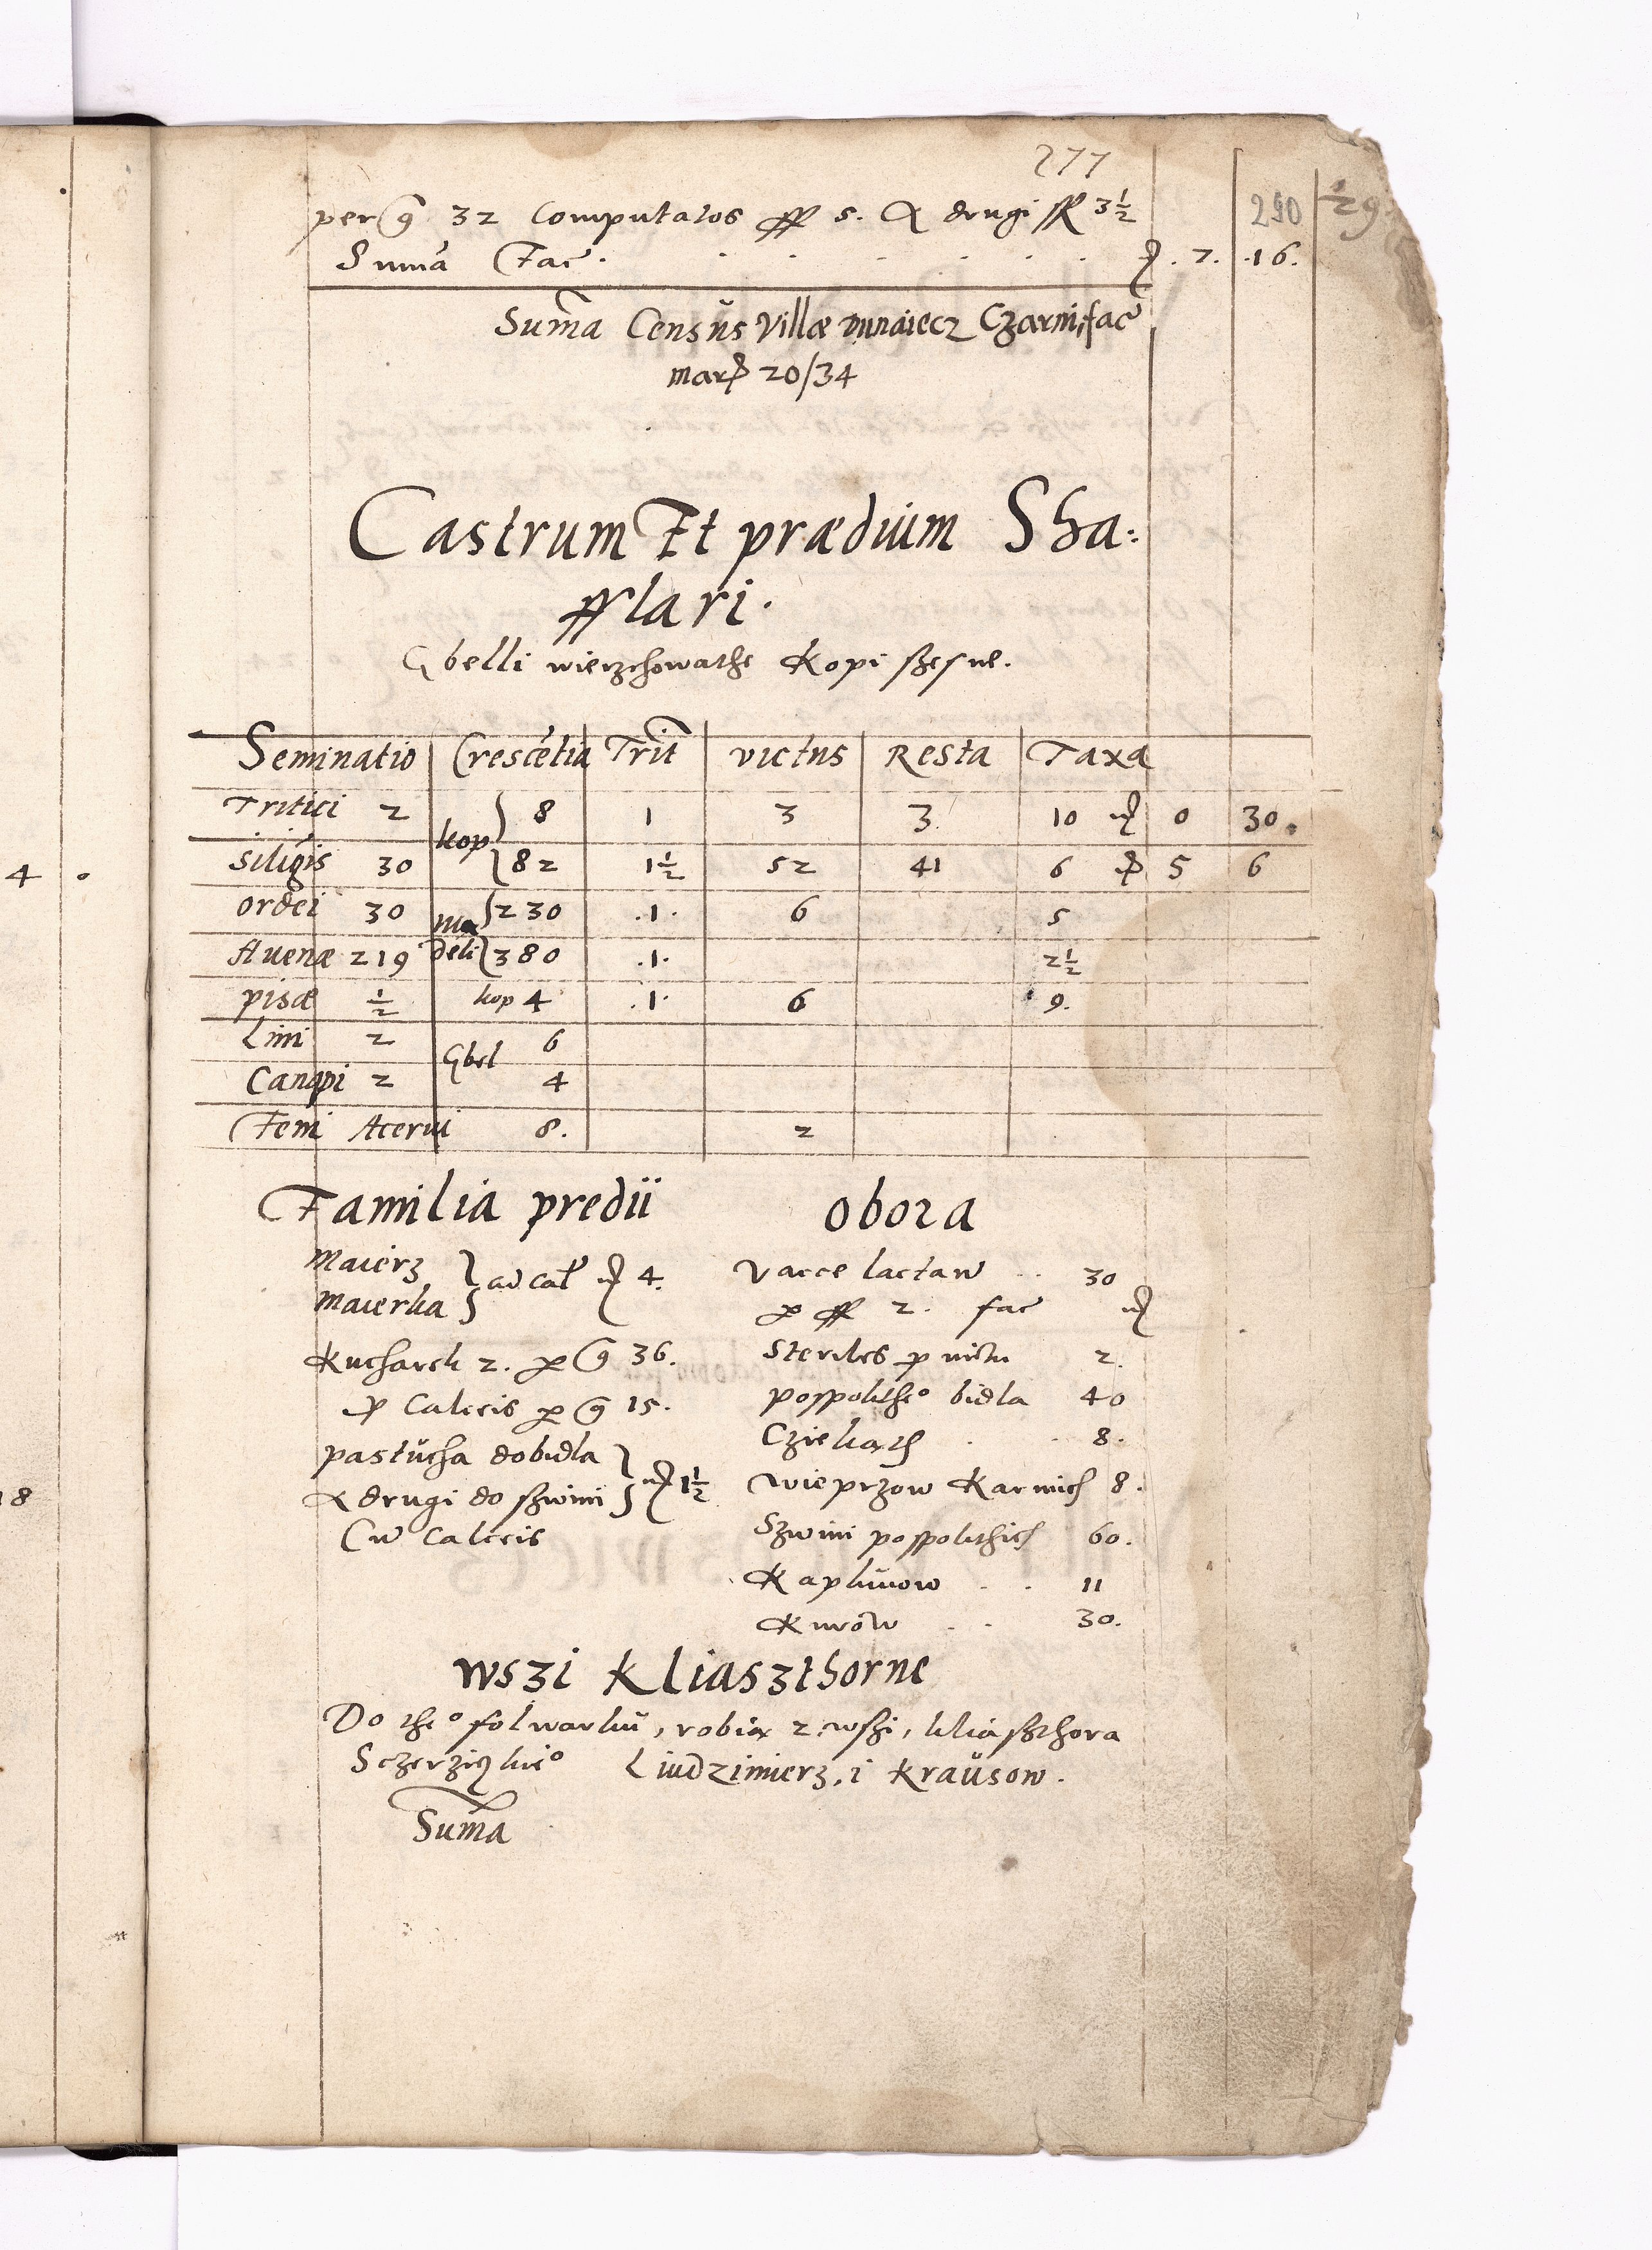 277
per g 32 Computatos ff 5. A drugi ff 3½ 290
Suma Fac . . . . . . . 7. 16.
Suma Censūs Villæ Dunaiecz Czarni, fac
mar 20/34
Castrum Et prædium Sha:
fflari.
Gbelli wierzchowathe Kopi szesne.
Seminatio Crescētia Trit victus Resta Taxa
Tritici 2 kop 8 1 3 3 10 0 30.
Siligis 30 82 1½ 52 41 6 5 6
ordei 30 mal 230 .1. 6 5
Auenæ 219 deli 380 .1. 2½
pisæ ½ kop 4 .1. 6 9.
Lini 2 Gbel 6
Canapi 2 4
Feni Acerui 8. 2
Familia predii
Maierz
Maierka ad cal 4.
Kucharek 2. p g 36.
Calceis p g 15.
pastucha do bidla
A drugi do szwini 1½
Cū calceis
obora
Vacce lactaw .. 30
p ff 2. fac
Steriles p victu 2.
pospolitheo bidla 40
Czieliath . . 8.
Wieprzow Karmich 8.
Szwini pospolithich 60.
Kaplunow . . 11
Kurow . . 30.
wszi Kliaszthorne
Do theo folwarku, robia z wszi, kliaszthora
Sczerzickieo Liudzimierz, i Krausow.
Suma
4 .
18